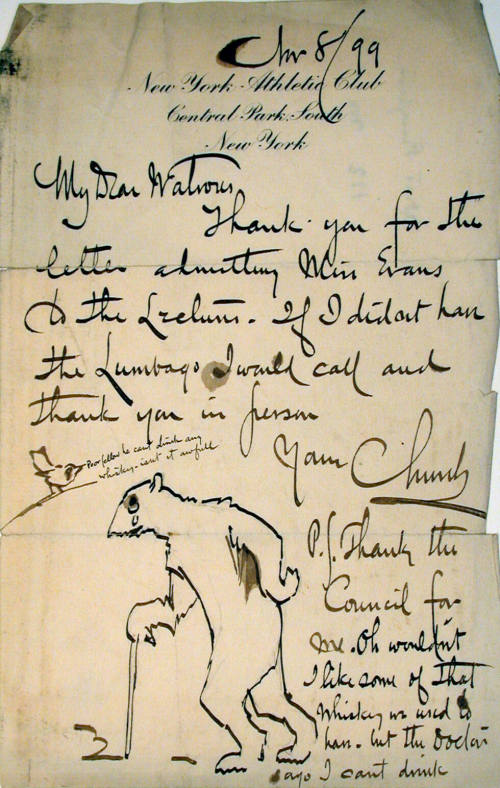 Nov 8/99
New York Athletic Club
Central Park South
New York
My Dear Watrous
Thank you for the
letter admitting Miss Evans
to the Lectures. If I didn't have
the Lumbago I would call and
thank you in person
Yours Church
Poor fellow he cant drink any
whiskey - isnt it awfull
P.S. Thank the
Council for
me. Oh wouldn't
I like some of That
Whiskey we used to
have. but the Doctor
says I cant drink